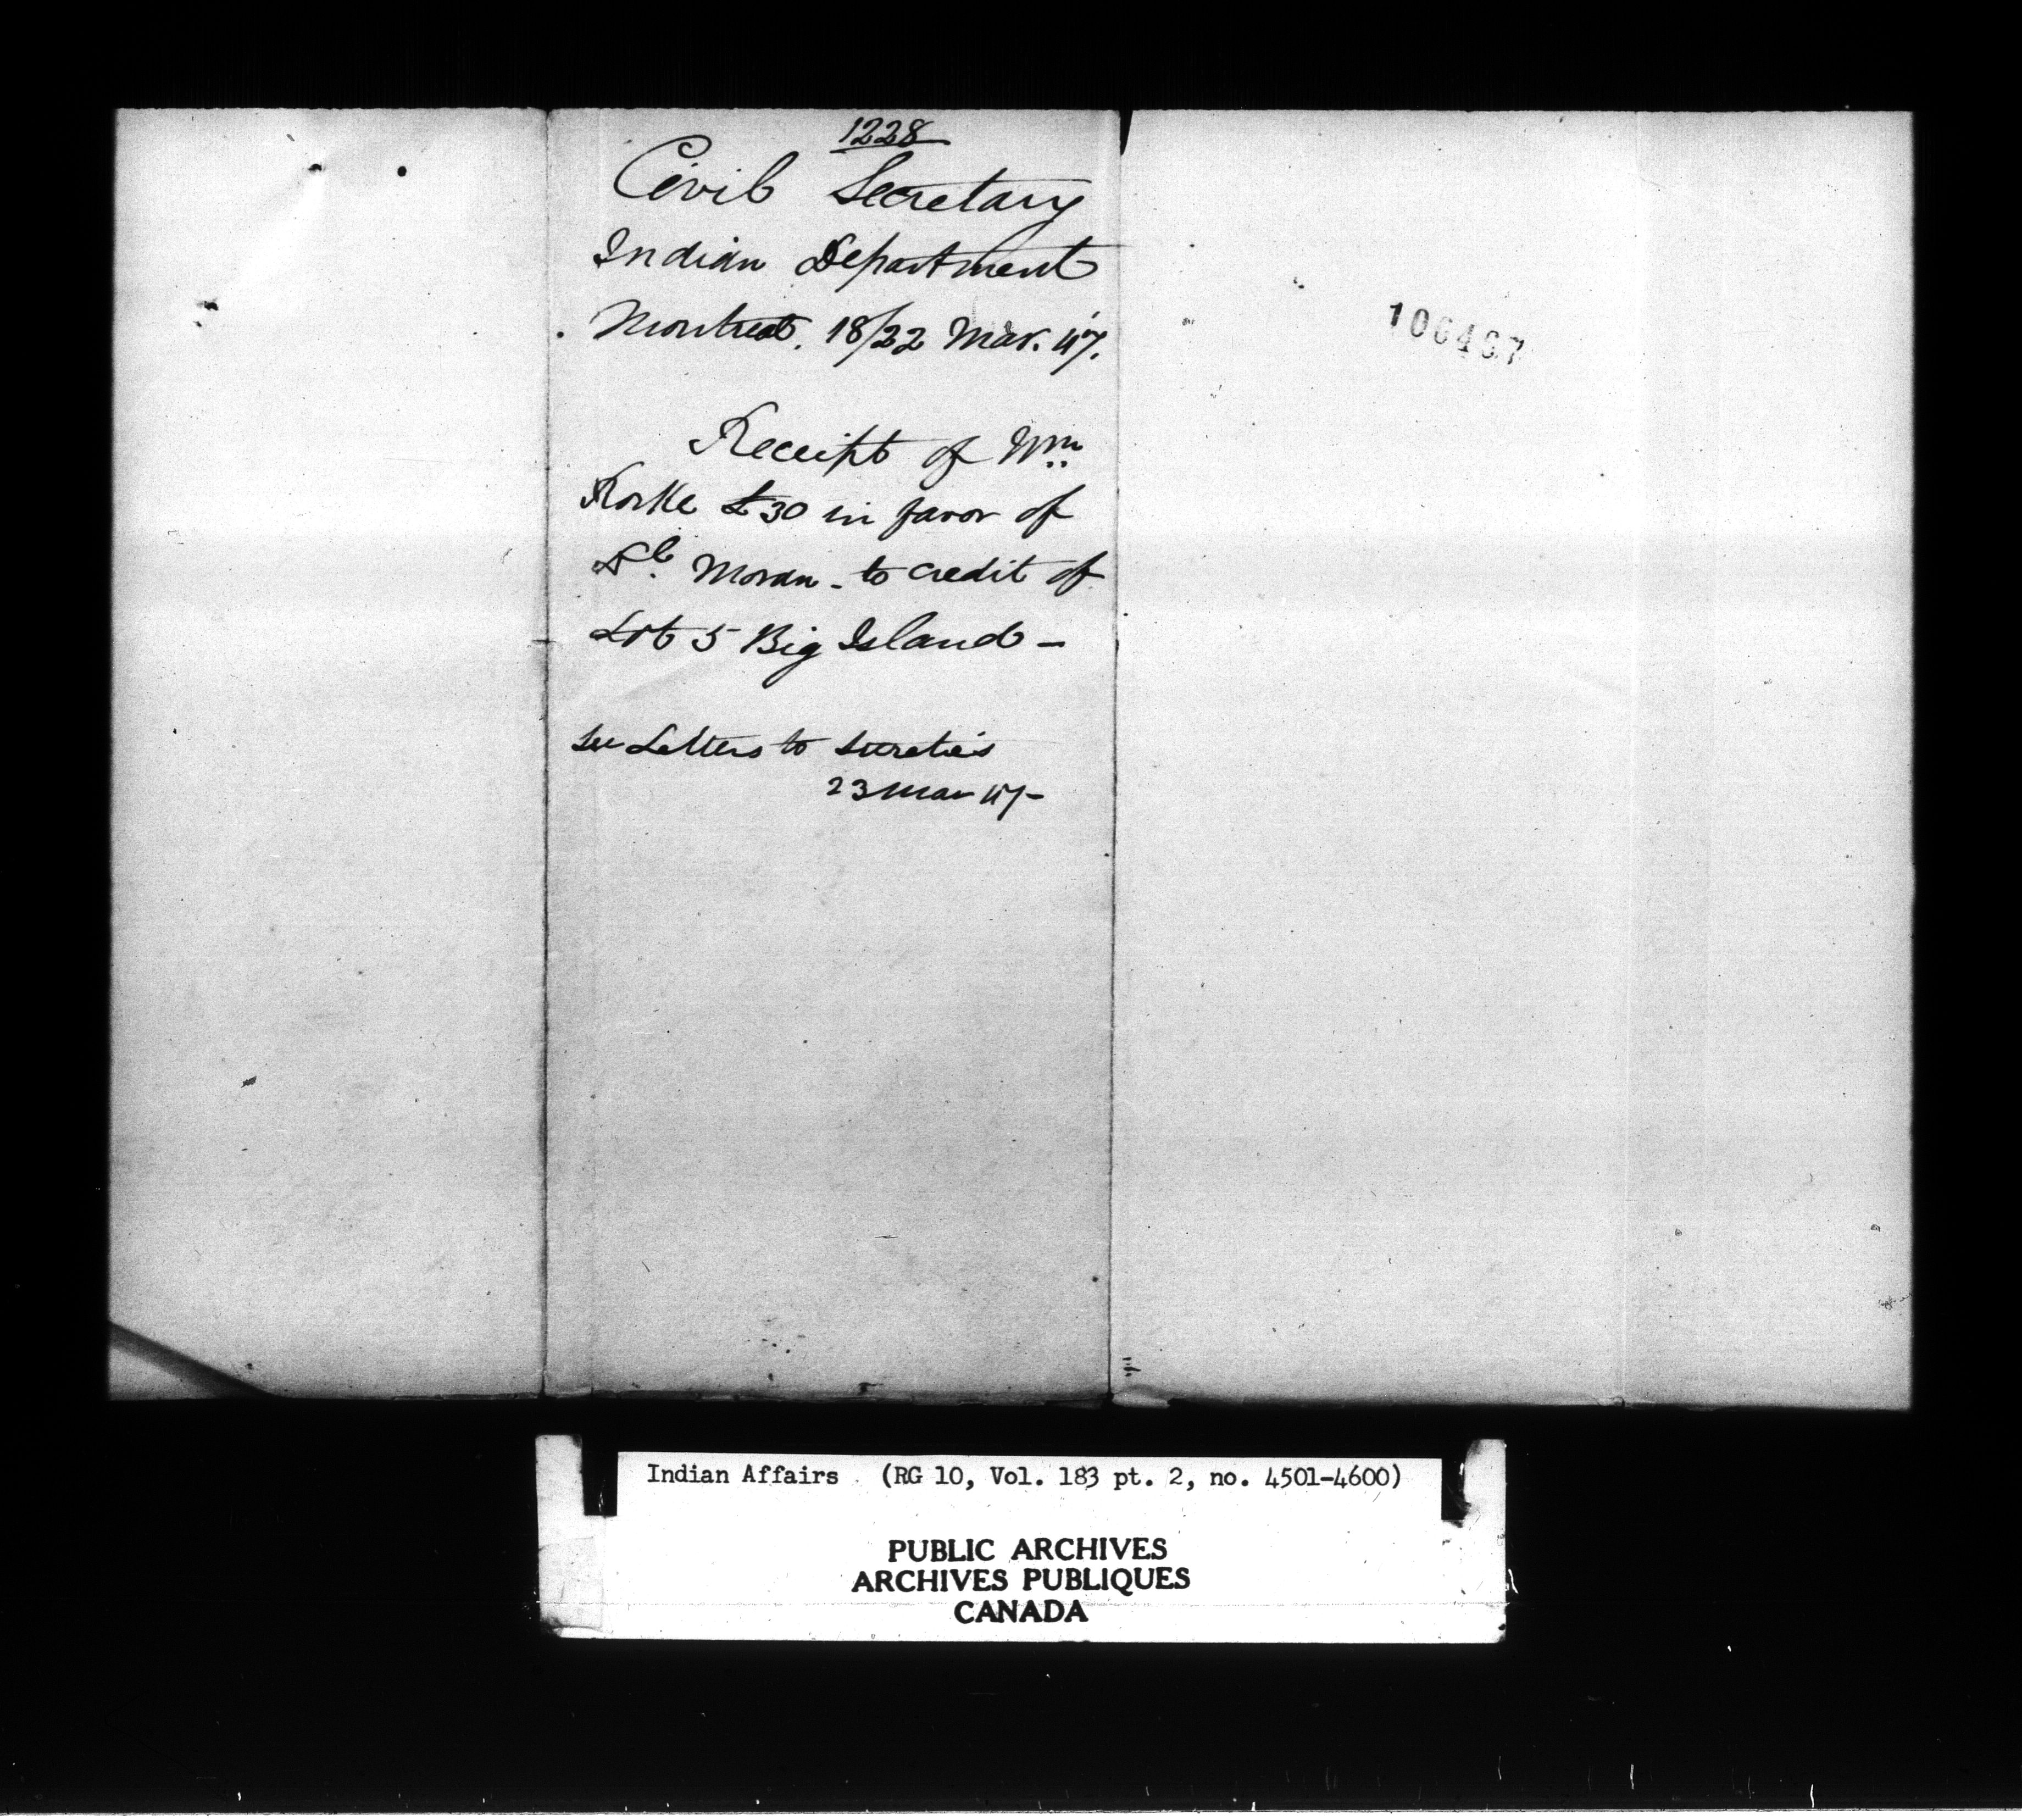 1228
Civil Secretary
Indian Department
Montreal. 18/22 Mar. '47.
106467
Receipt of Wm
Rorke £30 in favor of
Moran - to credit of
Lot 5 Big Island -
See Letters to Sureties
23 Mar 47-
Indian Affairs (RG 10, Vol. 183 pt. 2, no. 4501-4600)
PUBLIC ARCHIVES
ARCHIVES PUBLIQUES
CANADA